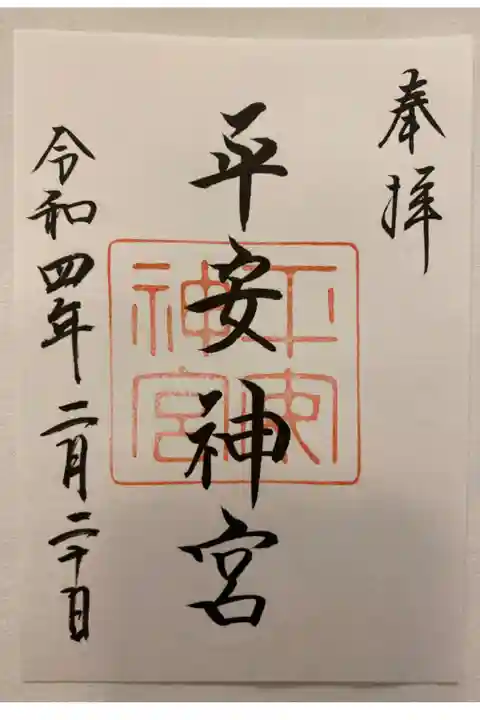 奉拝
平安神宮
平安神宮
令和四年二月二十日